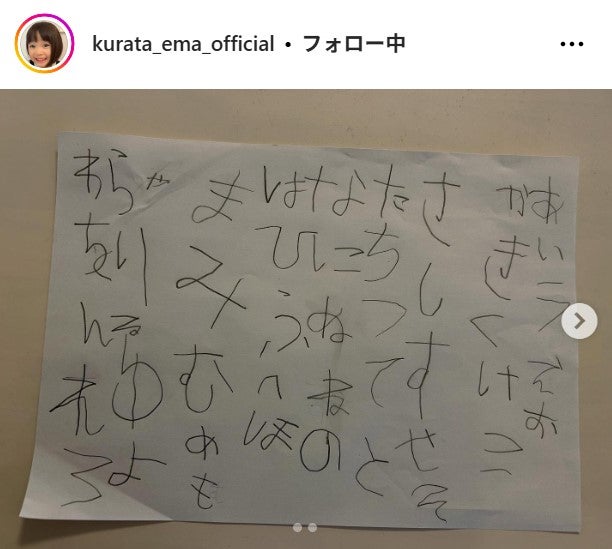 kurata_ema_official • フォロー中
あいうえお
かきくけこ
さしすせそ
たちつてと
なにぬねの
はひふへほ
まみむめも
やゆよ
らりるれろ
わをん